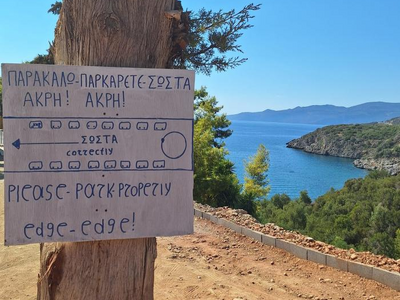 ΠΑΡΑΚΑΛΩ-ΠΑΡΚΑΡΕΤΕ-ΣΩΣΤΑ
ΑΚΡΗ! ΑΚΡΗ!
ΣΩΣΤΑ
correctly
Please-Park-Properly
edge-edge!